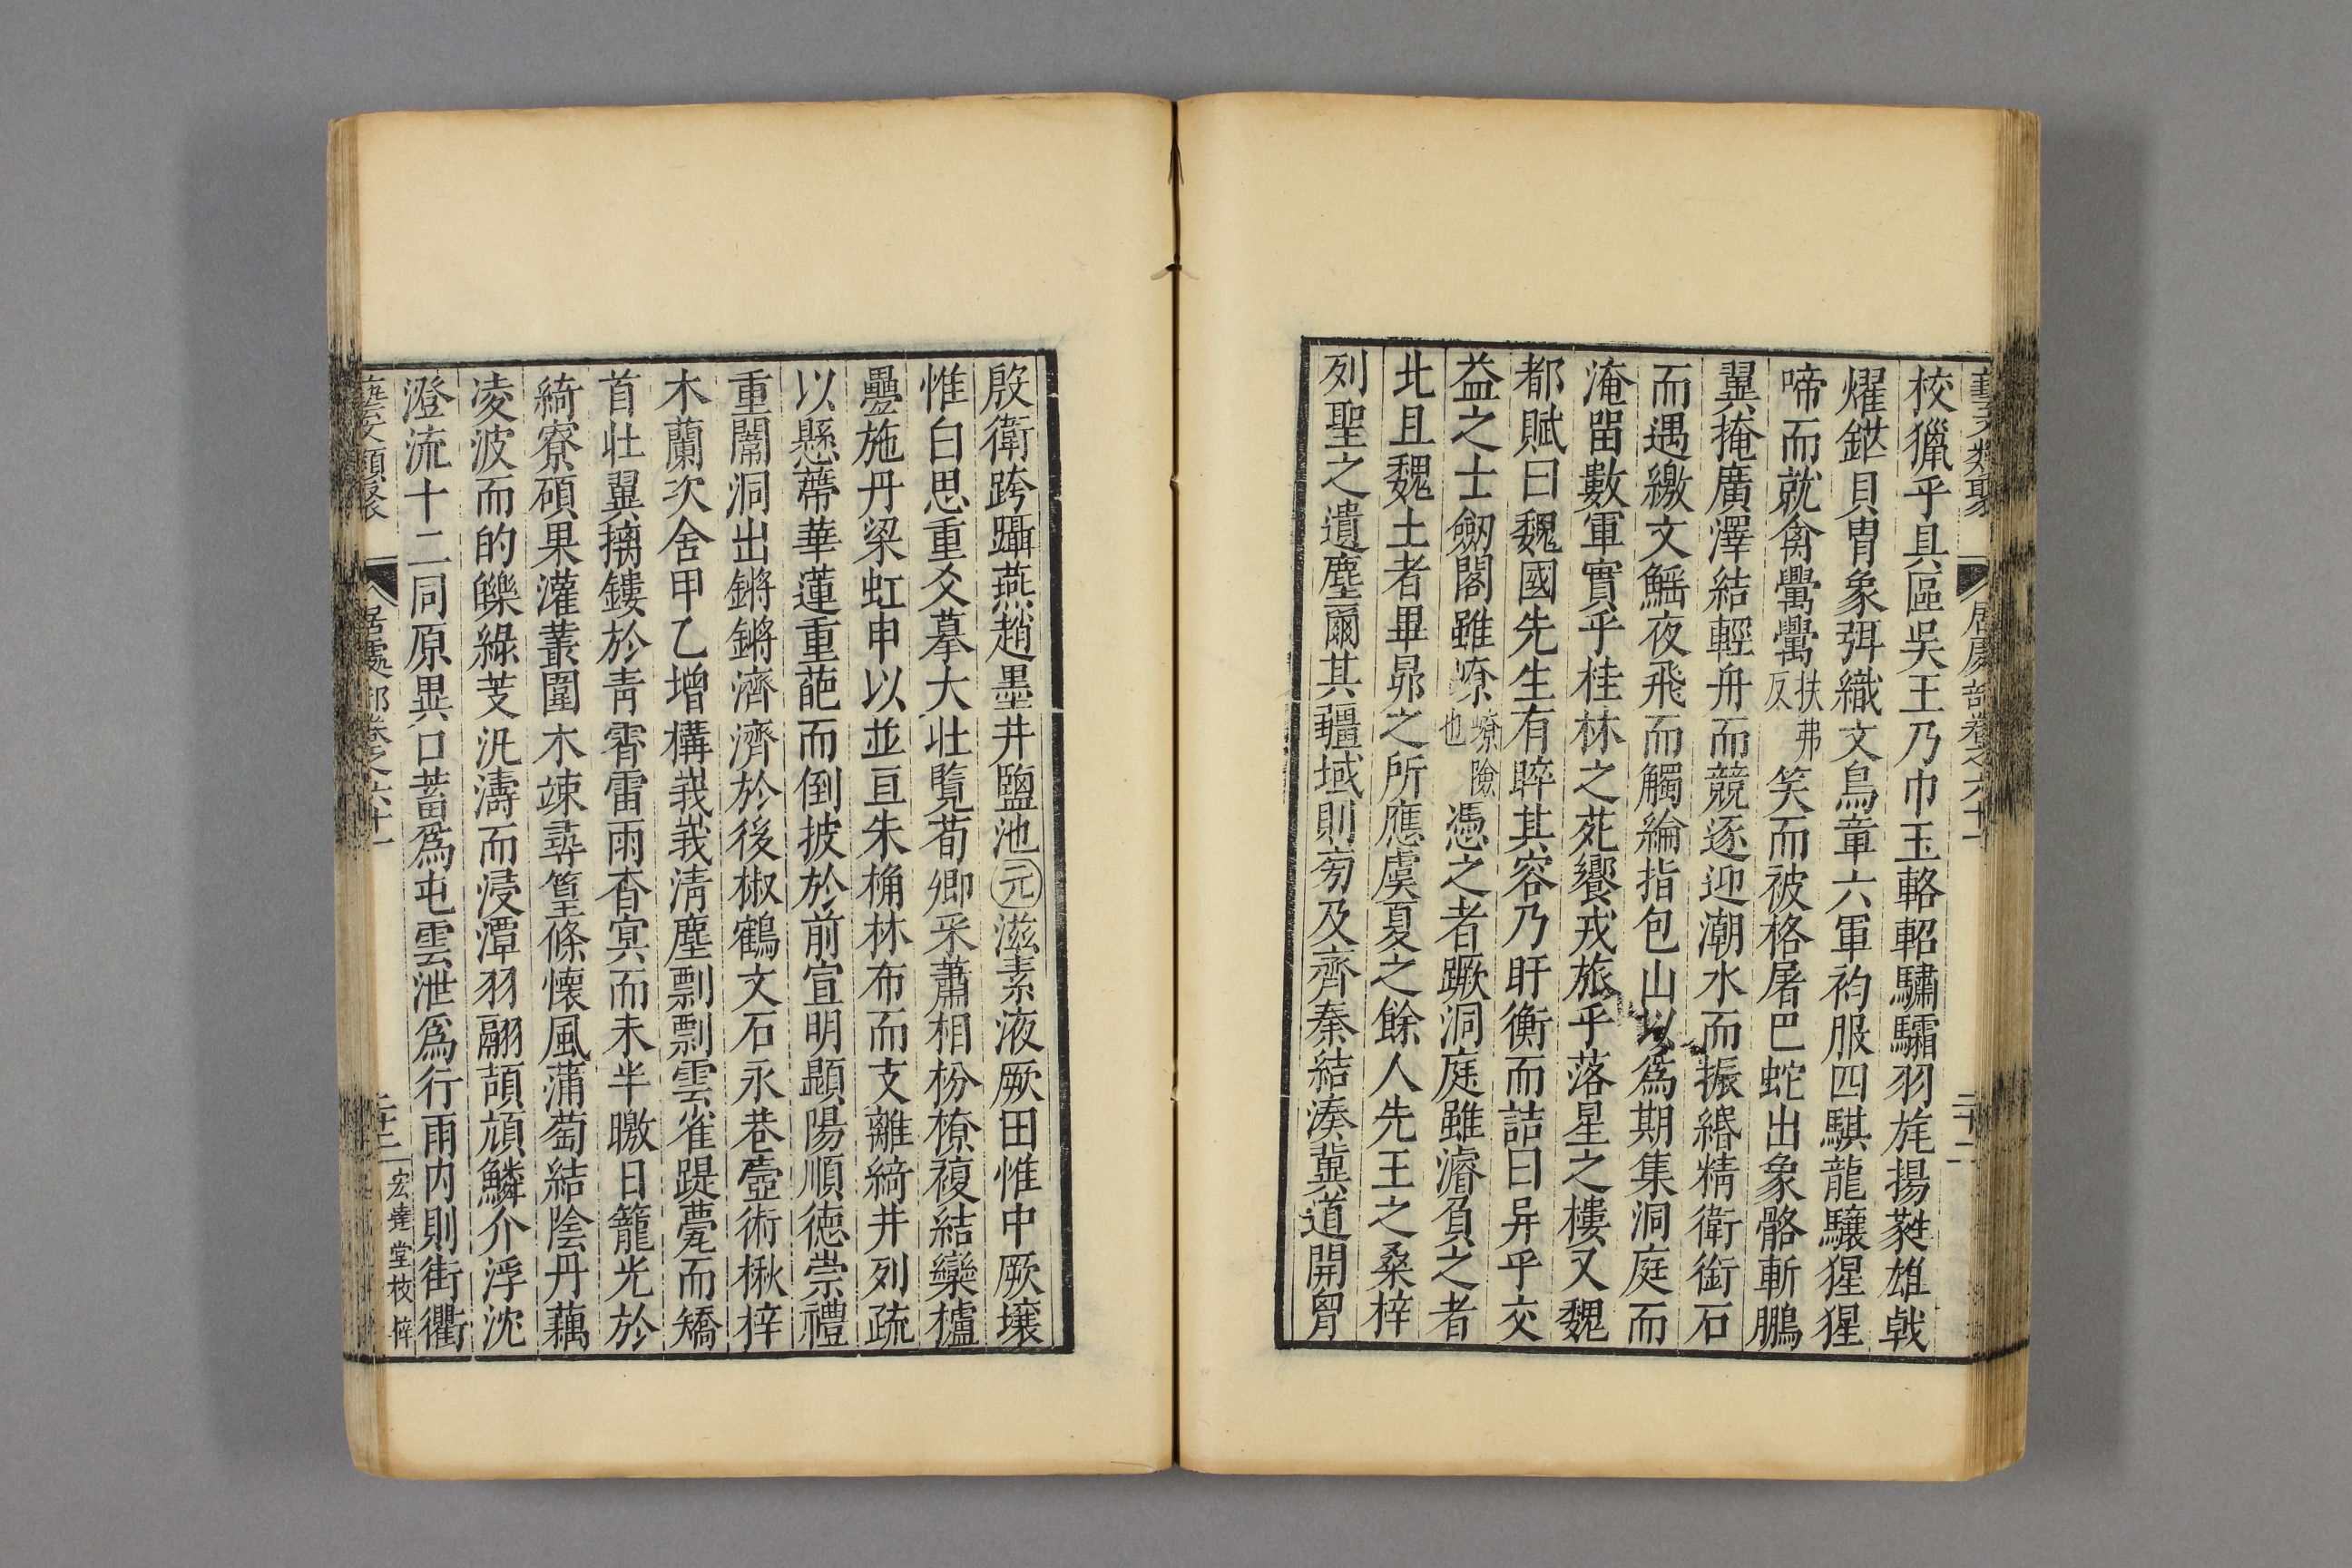 藝文類聚 居處部卷之六十一 二十二
校獵乎具區吳王乃巾玉輅軺驌驦羽旄揚蕤雄戟
耀鋩貝胄象弭織文鳥章六軍袀服四騏龍驤猩猩
啼而就禽𤟤𤟤扶弗反笑而被格屠巴蛇出象骼斬鵬
翼掩廣澤結輕舟而競逐迎潮水而振緡精衛銜石
而遇繳文鰩夜飛而觸綸指包山以爲期集洞庭而
淹畱數軍實乎桂林之苑饗戎旅乎落星之樓又魏
都賦曰魏國先生有睟其容乃盱衡而誥曰异乎交
益之士劒閣雖嘹嘹險也憑之者蹶洞庭雖濬負之者
北且魏土者畢昴之所應虞夏之餘人先王之桑梓
列聖之遺塵爾其疆域則旁及齊秦結湊冀道開胷
殷衛跨躡燕趙墨井鹽池元滋素液厥田惟中厥壤
惟白思重爻摹大壯覽荀卿采蕭相枌橑複結欒櫨
疊施丹梁虹申以並亘朱桷林布而支離綺井列疏
以懸蔕華蓮重葩而倒披於前宣明顯陽順德崇禮
重闈洞出鏘鏘濟濟於後椒鶴文石永巷壼術楸梓
木蘭次舍甲乙增構峩峩清塵剽剽雲雀踶甍而矯
首壯翼摛鏤於青霄雷雨杳冥而未半曒日籠光於
綺寮碩果灌叢圍木竦尋篁篠懷風蒲萄結陰丹藕
凌波而的皪綠芰汎濤而浸潭羽翮頡頏鱗介浮沈
澄流十二同原異口蓄爲屯雲泄爲行雨内則街衢
藝文類聚 居處部卷之六十一 二十二 宏達堂校梓